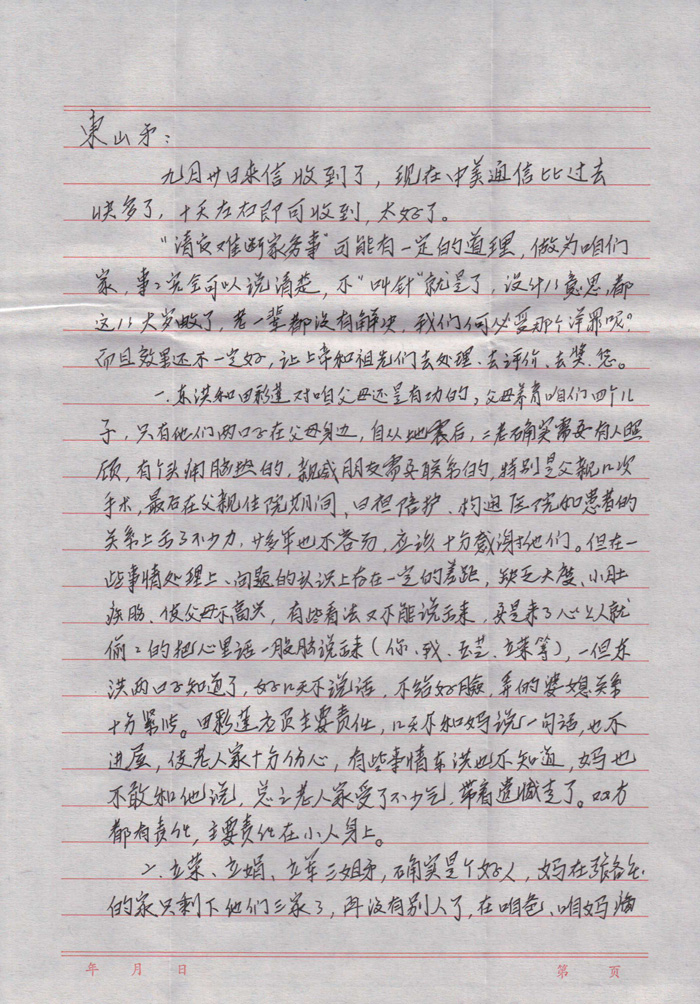 東山弟:
九月廿日来信收到了，现在中美通信比过去
快多了，十天左右即可收到，太好了。
"清官难断家务事"可能有一定的道理，做为咱们
家，事事完全可以说清楚，不"叫针"就是了，没什么意思，都
这么大岁数了，老一辈都没有解决，我们何必受那个洋罪呢？
而且效果还不一定好，让上帝和祖先们去处理、去评价、去奖、惩。
一、东洪和田彩莲对咱父母还是有功的，父母养育咱们四个儿
子，只有他们两口子在父母身边，自从地震后，二老确实需要有人照
顾，有个头痛脑热的，亲戚朋友需要联系的，特别是父亲几次
手术，最后在父亲住院期间，日担陪护、沟通医院和患者的
关系上出了不少力，廿多年也不容易，应该十分感谢他们。但在一
些事情处理上、问题的认识上存在一定的差距，缺乏大度、小肚
鸡肠、使父母不高兴，有些看法又不能说出来，要是来了心上人就
偷偷的把心里话一股脑说出来（你、我、玉芝、立荣等），一但东
洪两口子知道了，好几天不说话，不给好脸，弄的婆媳关系
十分紧张。田彩莲应负主要责任，几天不和妈说一句话，也不
进屋，使老人家十分伤心，有些事情东洪也不知道，妈也
不敢和他说，总之老人家受了不少气，带着遗憾走了。双方
都有责任，主要责任在小人身上。
二、立荣、立娟、立军三姐弟，确实是个好人，妈在张各庄
的家只剩下他们三家了，再没有别人了，在咱爸、咱妈
年 月 日
第 页